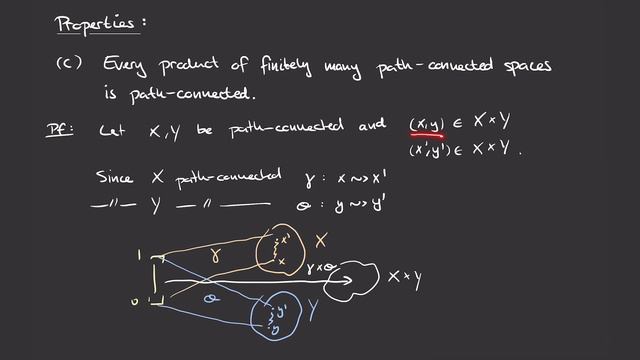 Properties:
(c) Every product of finitely many path-connected spaces
is path-connected.
Pf: Let X, Y be path-connected and (x,y) ∈ X × Y
(x',y') ∈ X × Y.
Since X path-connected γ: x ⇝ x'
—"— Y —"— θ: y ⇝ y'
1 γ x' x X
γ×θ X × Y
0 θ y' y Y